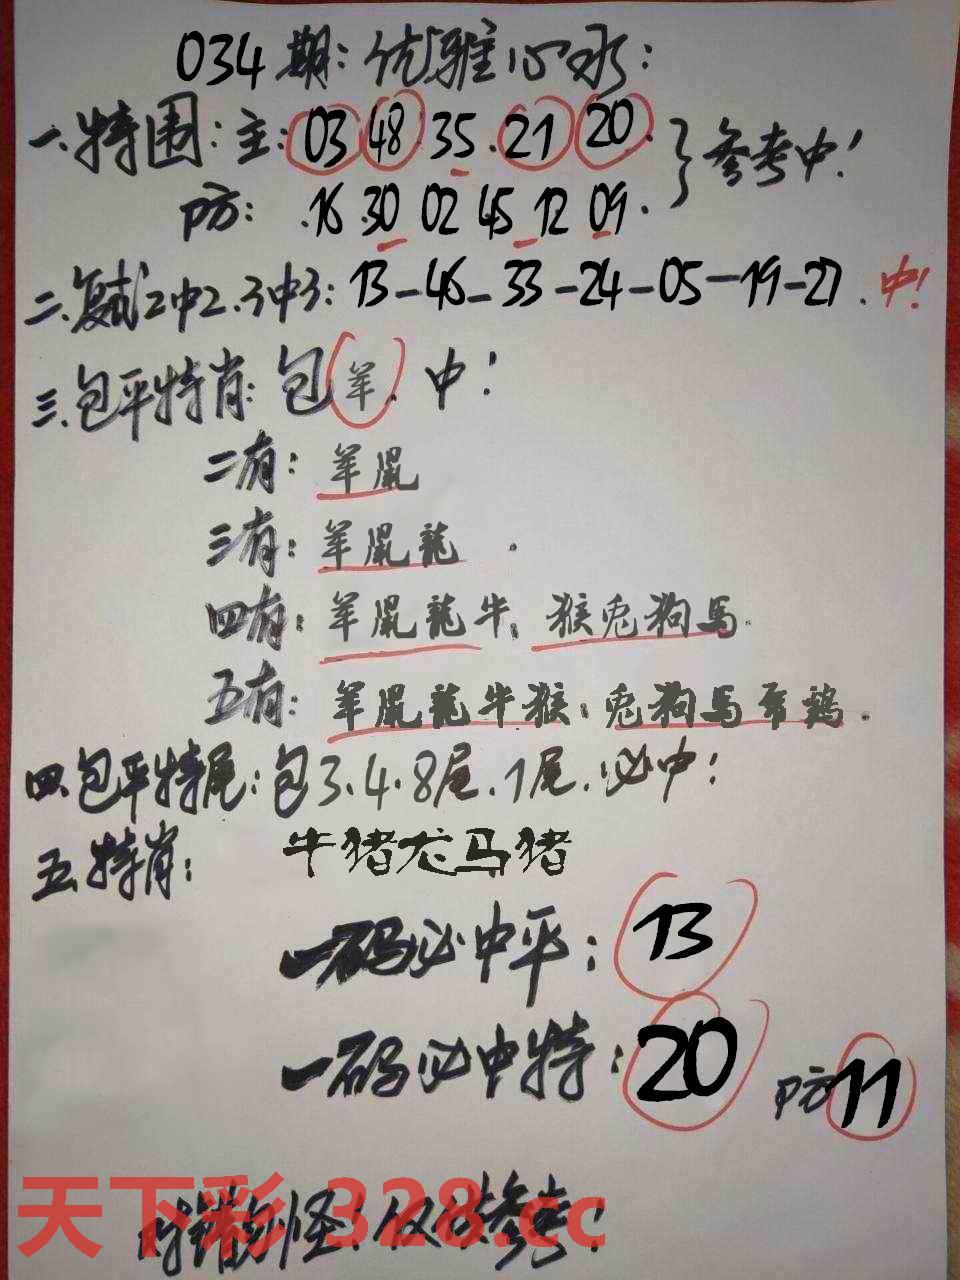 034期:优雅心水:
一.特围:主:03 48 35.21 20. 参考中!
防: .16 30 02 45 12 09.
二.复式2中2.3中3:13-46-33-24-05-19-27.中!
三.包平特肖:包羊.中!
二有:羊鼠
三有:羊鼠龍.
四有:羊鼠龍牛;猴兔狗馬.
五有:羊鼠龍牛猴;兔狗馬 鷄.
四.包平特尾:包3.4.8尾.1尾.必中!
五.特肖: 牛猪龙马猪
一码必中平:13
一码必中特:20 防11
对错勿怪!仅供参考!
天下彩 328.cc